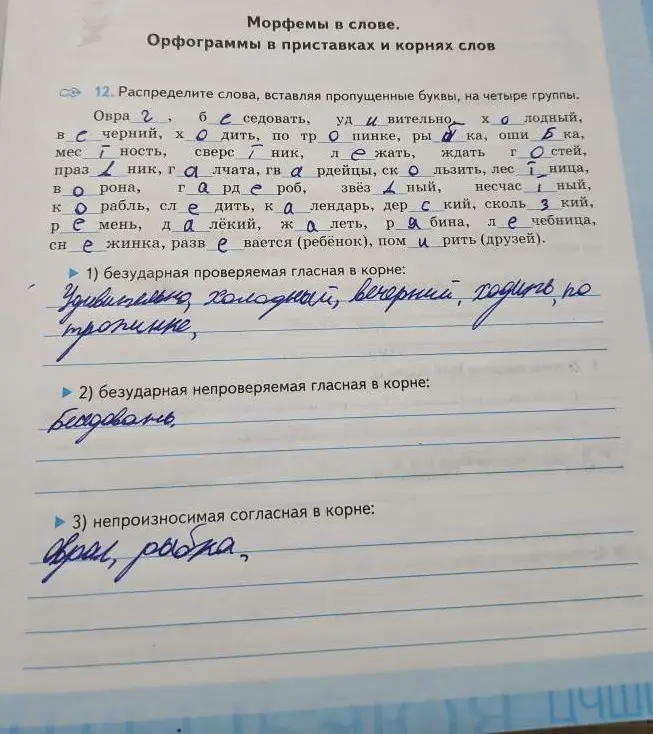 Морфемы в слове.
Орфограммы в приставках и корнях слов
12. Распределите слова, вставляя пропущенные буквы, на четыре группы.
Овра г , б е седовать, уд и вительно, х о лодный,
в е черний, х о дить, по тр о пинке, ры б ка, оши б ка,
мес т ность, сверс т ник, л е жать, ждать г о стей,
праз д ник, г а лчата, гв а рдейцы, ск о льзить, лес т ница,
в о рона, г а рд е роб, звёз д ный, несчас т ный,
к о рабль, сл е дить, к а лендарь, дер с кий, сколь з кий,
р е мень, д а лёкий, ж а леть, р я бина, л е чебница,
сн е жинка, разв е вается (ребёнок), пом и рить (друзей).
1) безударная проверяемая гласная в корне:
Удивительно, холодный, вечерний, ходить, по
тропинке,
2) безударная непроверяемая гласная в корне:
Беседовать,
3) непроизносимая согласная в корне:
рыбка,